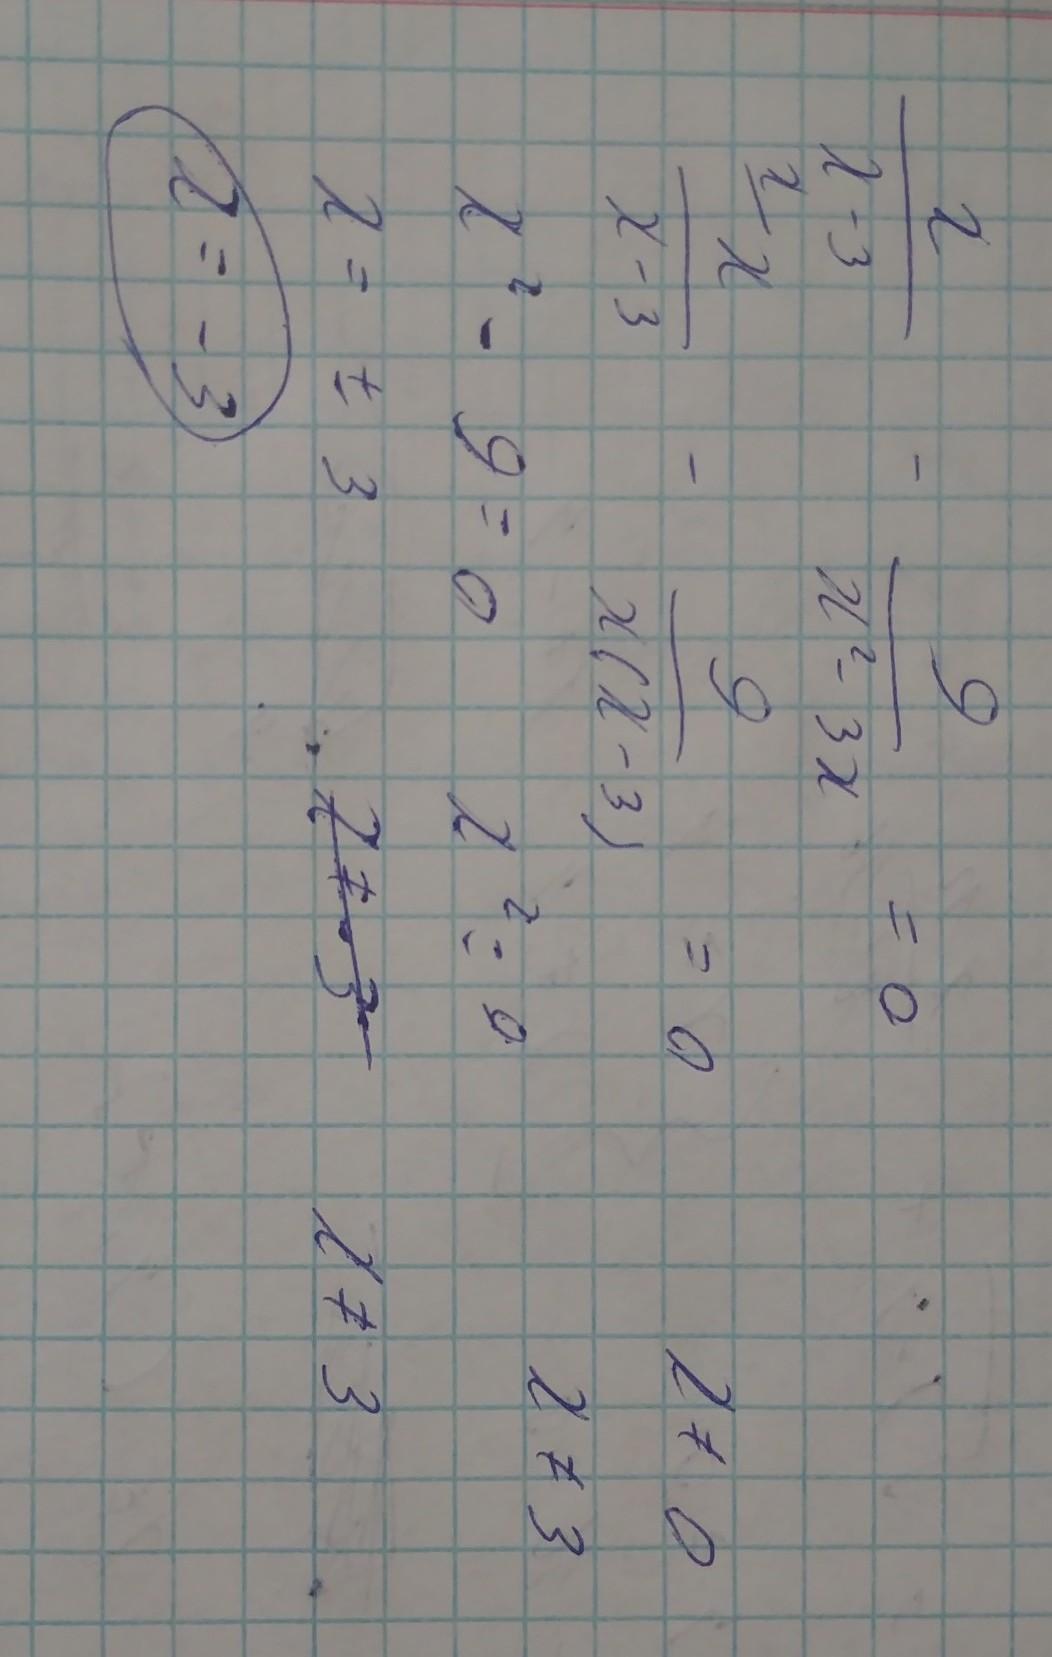 x/(x-3) - 9/(x²-3x) = 0
x\ x/(x-3) - 9/(x(x-3)) = 0 x ≠ 0
x ≠ 3
x² - 9 = 0 x² = 9
x = ± 3 x ≠ -3 x ≠ 3
x = -3